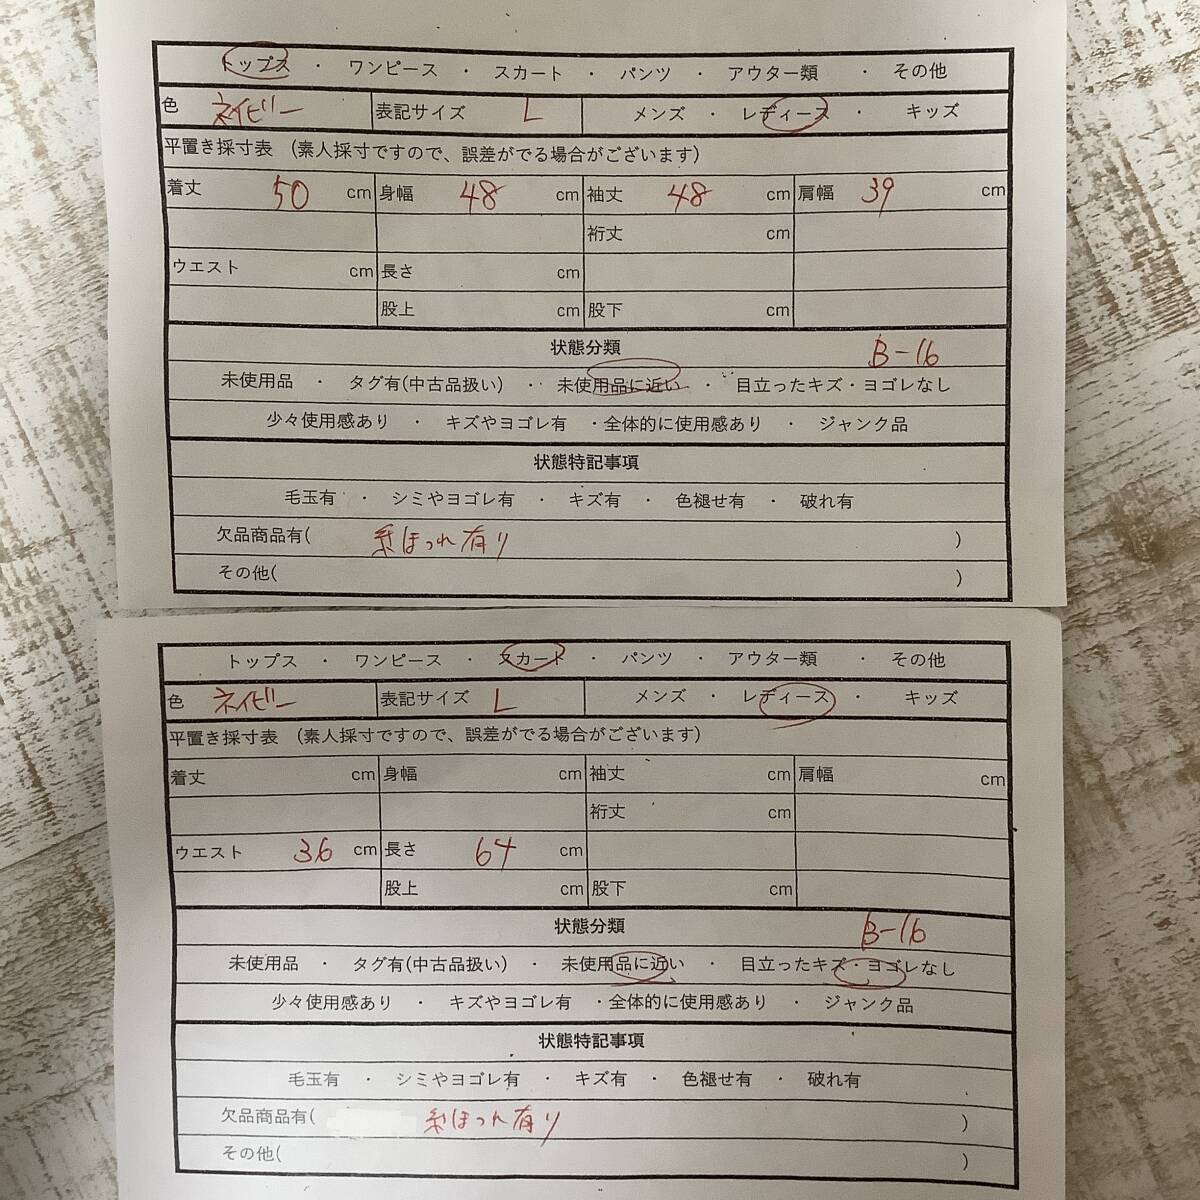 トップス ・ ワンピース ・ スカート ・ パンツ ・ アウター類 ・ その他
色 ネイビー 表記サイズ L メンズ ・ レディース ・ キッズ
平置き採寸表 (素人採寸ですので、誤差がでる場合がございます)
着丈 50 cm 身幅 48 cm 袖丈 48 cm 肩幅 39 cm
裄丈 cm
ウエスト cm 長さ cm
股上 cm 股下 cm
状態分類 B-16
未使用品 ・ タグ有(中古品扱い) ・ 未使用品に近い ・ 目立ったキズ・ヨゴレなし
少々使用感あり ・ キズやヨゴレ有 ・全体的に使用感あり ・ ジャンク品
状態特記事項
毛玉有 ・ シミやヨゴレ有 ・ キズ有 ・ 色褪せ有 ・ 破れ有
欠品商品有( 糸ほつれ有り )
その他( )
トップス ・ ワンピース ・ スカート ・ パンツ ・ アウター類 ・ その他
色 ネイビー 表記サイズ L メンズ ・ レディース ・ キッズ
平置き採寸表 (素人採寸ですので、誤差がでる場合がございます)
着丈 cm 身幅 cm 袖丈 cm 肩幅 cm
裄丈 cm
ウエスト 36 cm 長さ 64 cm
股上 cm 股下 cm
状態分類 B-16
未使用品 ・ タグ有(中古品扱い) ・ 未使用品に近い ・ 目立ったキズ・ヨゴレなし
少々使用感あり ・ キズやヨゴレ有 ・全体的に使用感あり ・ ジャンク品
状態特記事項
毛玉有 ・ シミやヨゴレ有 ・ キズ有 ・ 色褪せ有 ・ 破れ有
欠品商品有( 糸ほつれ有り )
その他( )